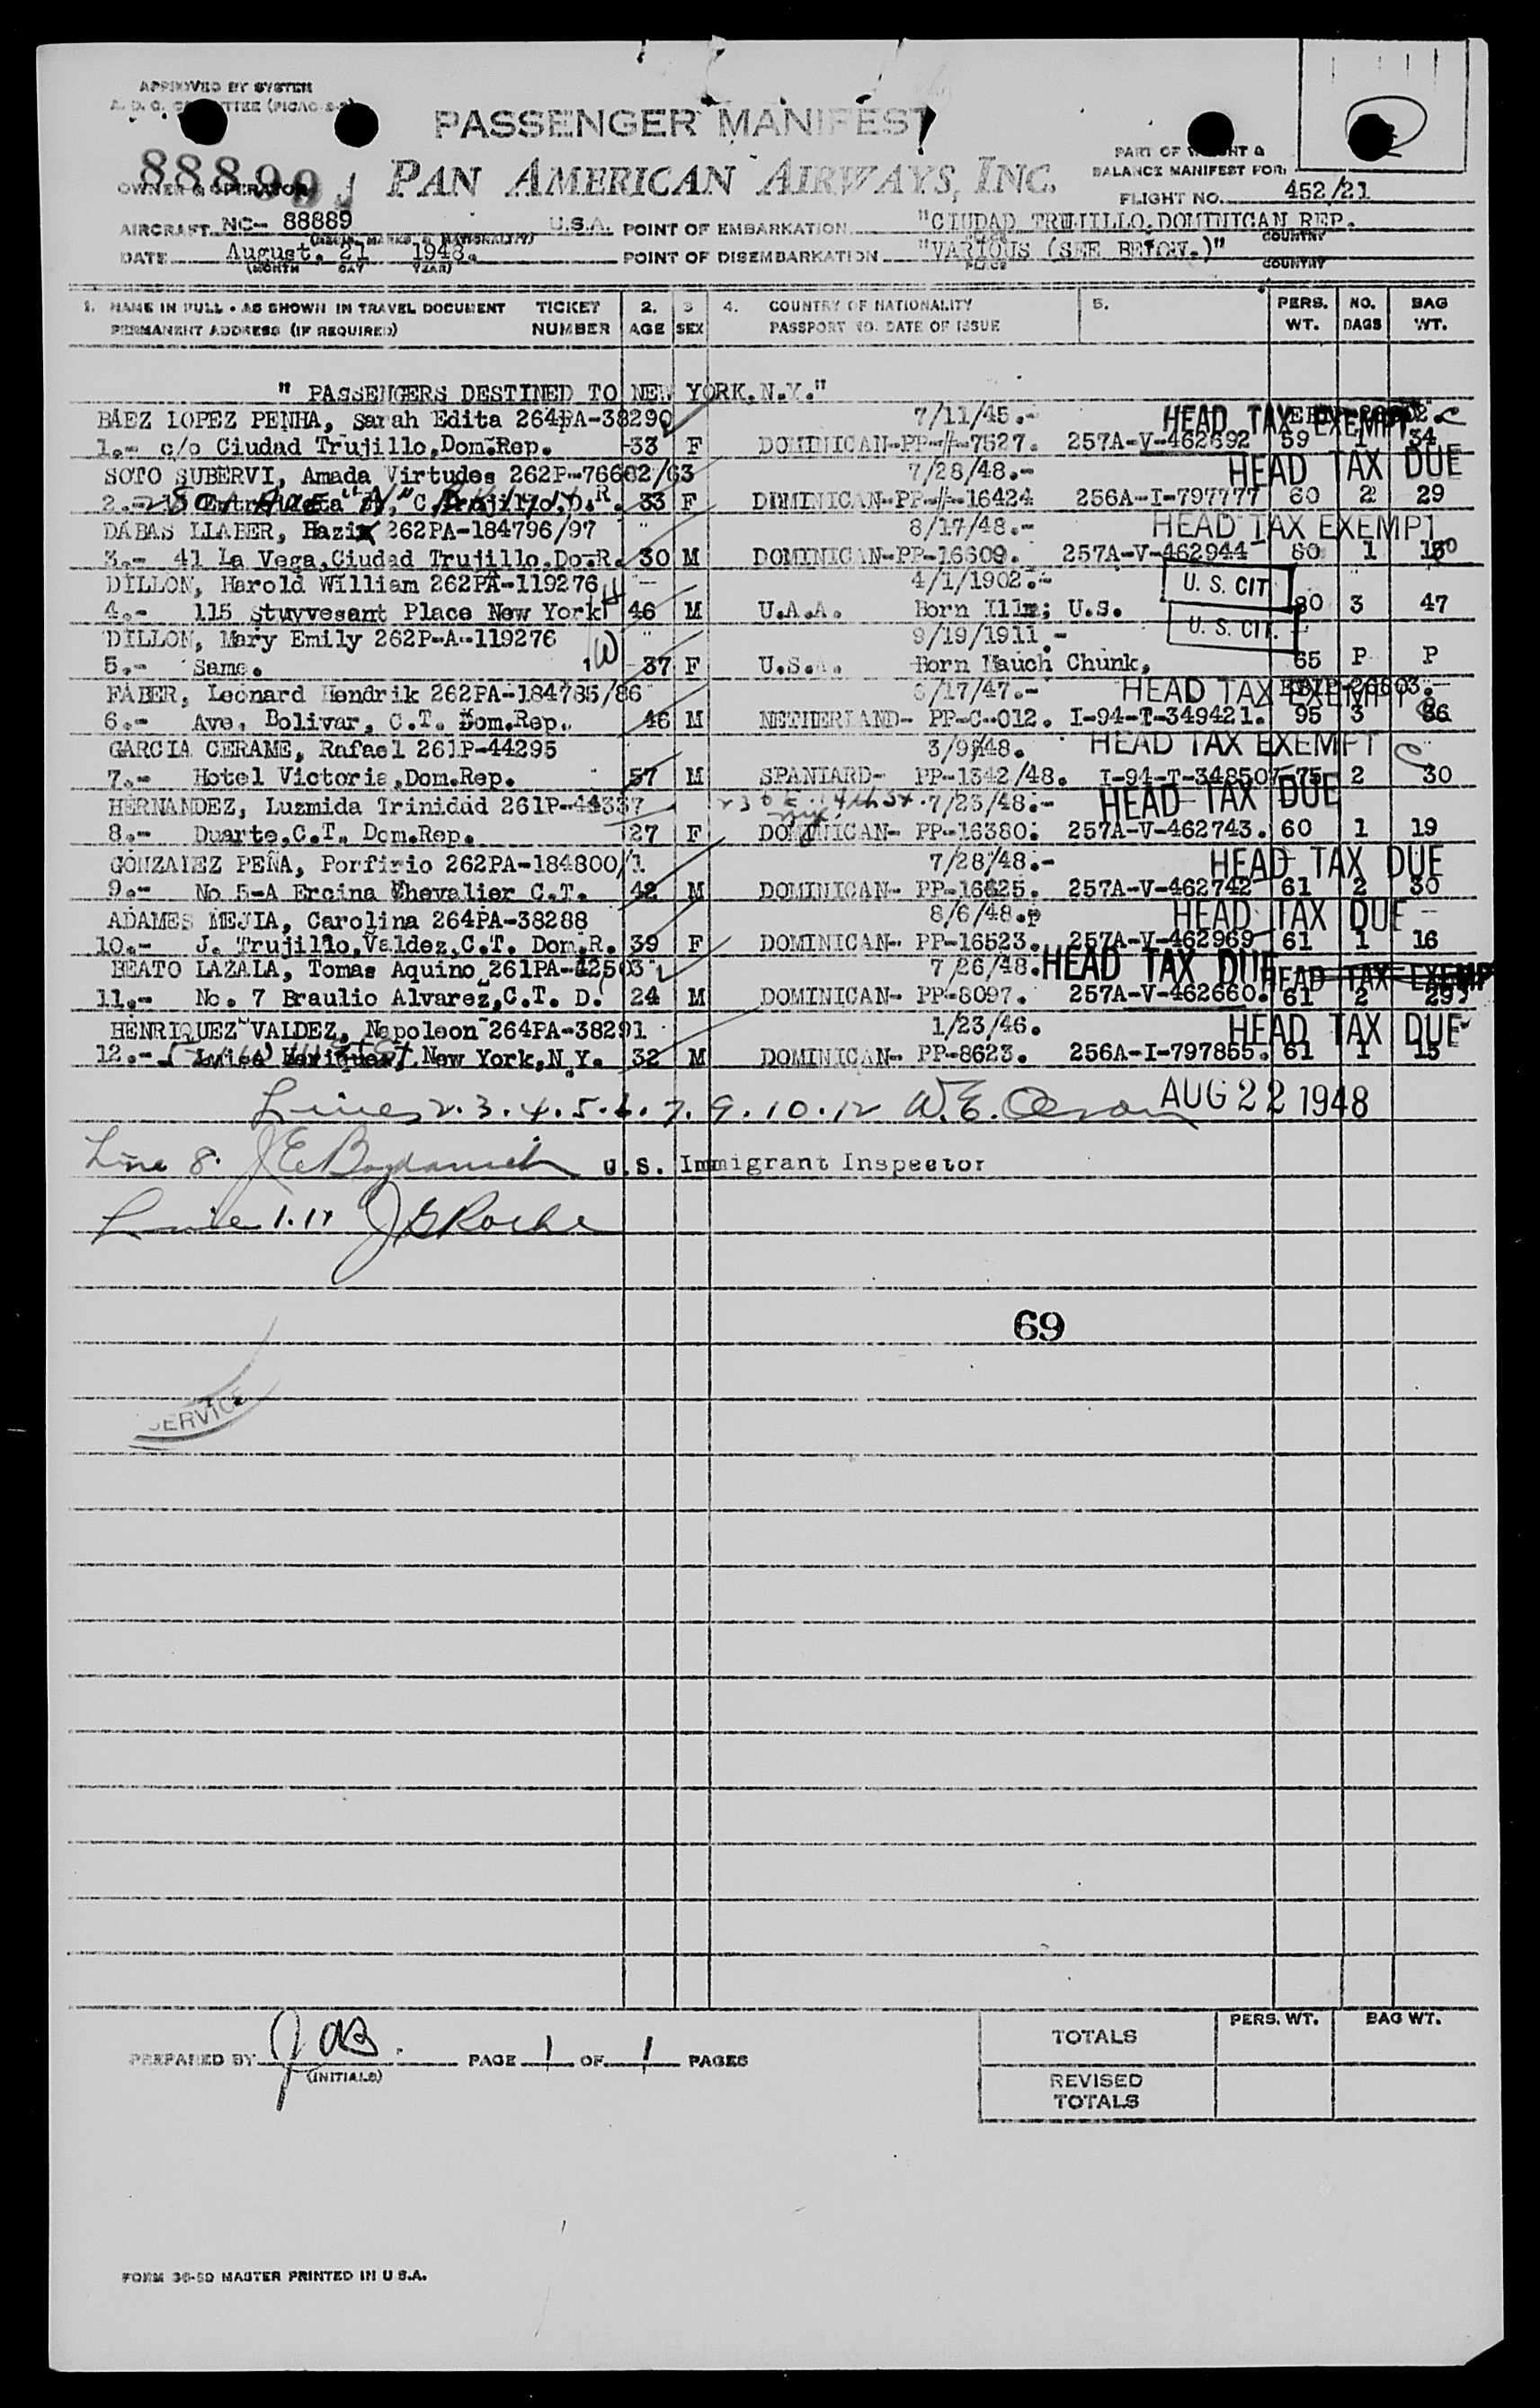 APPROVED BY SYSTEM
PASSENGER MANIFEST
88889
PAN AMERICAN AIRWAYS, INC.
PART OF WEIGHT &
BALANCE MANIFEST FOR:
OWNER & OPERATOR
FLIGHT NO. 452/21
AIRCRAFT NC- 88889 U.S.A. POINT OF EMBARKATION "CIUDAD TRUJILLO, DOMINICAN REP.
(REGIS. MARKS & NATIONALITY) COUNTRY
DATE August. 21 1948. POINT OF DISEMBARKATION "VARIOUS (SEE BELOW.)"
(MONTH DAY YEAR) PLACE COUNTRY
1. NAME IN FULL - AS SHOWN IN TRAVEL DOCUMENT TICKET 2. 3 4. COUNTRY OF NATIONALITY 5. PERS. NO. BAG
PERMANENT ADDRESS (IF REQUIRED) NUMBER AGE SEX PASSPORT NO. DATE OF ISSUE WT. BAGS WT.
" PASSENGERS DESTINED TO NEW YORK, N.Y."
BAEZ LOPEZ PENHA, Sarah Edita 264PA-38290 7/11/45.- HEAD TAX EXEMPT
1.- c/o Ciudad Trujillo, Dom.Rep. 33 F DOMINICAN-PP-#-7527. 257A-V-462692 59 1 34
SOTO SUBERVI, Amada Virtudes 262P-76662/63 7/28/48.- HEAD TAX DUE
2.- 33 F DIMINICAN-PP-#-16424 256A-I-797777 60 2 29
DABAS LLABER, Hazim 262PA-184796/97 8/17/48.- HEAD TAX EXEMPT
3.- 41 La Vega, Ciudad Trujillo, Do.R. 30 M DOMINICAN-PP-16609. 257A-V-462944 80 1
DILLON, Harold William 262PA-119276 H 4/1/1902.- U. S. CIT
4.- 115 Stuyvesant Place New York 46 M U.A.A. Born Illm; U.S. 80 3 47
DILLON, Mary Emily 262P-A-119276 W 9/19/1911.- U. S. CIT.
5.- Same. 37 F U.S.A. Born Mauch Chunk, 65 P P
FABER, Leonard Hendrik 262PA-184785/86 6/17/47.- HEAD TAX EXEMPT
6.- Ave. Bolivar, C.T. Dom.Rep. 46 M NETHERLAND- PP-C-012. I-94-T-349421. 95 3 86
GARCIA CERAME, Rafael 261P-44295 3/9/48. HEAD TAX EXEMPT C
7.- Hotel Victoria, Dom.Rep. 57 M SPANIARD- PP-1342/48. I-94-T-348507 75 2 30
HERNANDEZ, Luzmida Trinidad 261P-44337 7/23/48.- HEAD TAX DUE
8.- Duarte, C.T. Dom.Rep. 27 F DOMINICAN- PP-16380. 257A-V-462743. 60 1 19
GONZALEZ PEÑA, Porfirio 262PA-184800/1 7/28/48.- HEAD TAX DUE
9.- No 5-A Ercina Chevalier C.T. 42 M DOMINICAN- PP-16425. 257A-V-462742 61 2 30
ADAMES MEJIA, Carolina 264PA-38288 8/6/48. HEAD TAX DUE
10.- J. Trujillo, Valdez, C.T. Dom.R. 39 F DOMINICAN- PP-16523. 257A-V-462969 61 1 16
BEATO LAZALA, Tomas Aquino 261PA-42503 7/26/48. HEAD TAX DUE HEAD TAX EXEMP
11.- No. 7 Braulio Alvarez, C.T. D. 24 M DOMINICAN- PP-8097. 257A-V-462660. 61 2 29
HENRIQUEZ VALDEZ, Napoleon 264PA-38291 1/23/46. HEAD TAX DUE
12.- New York, N.Y. 32 M DOMINICAN- PP-8623. 256A-I-797855. 61 1 15
Lines 2.3.4.5.6.7.9.10.12 W.E. AUG 22 1948
Line 8. U.S. Immigrant Inspector
Line 1.11 J G Roche
69
SERVICE
TOTALS PERS. WT. BAG WT.
PREPARED BY (INITIALS) PAGE 1 OF 1 PAGES
REVISED
TOTALS
FORM 36-50 MASTER PRINTED IN U S.A.